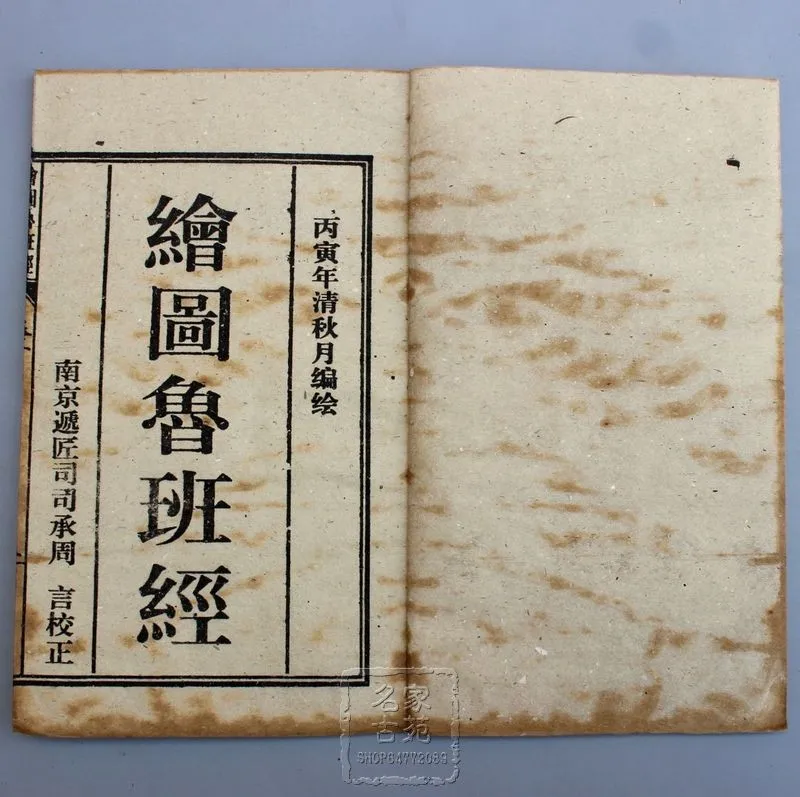 丙寅年清秋月编绘
繪圖魯班經
南京遞匠司司承周 言校正
繪圖魯班經
名家古苑
SHOP64772089